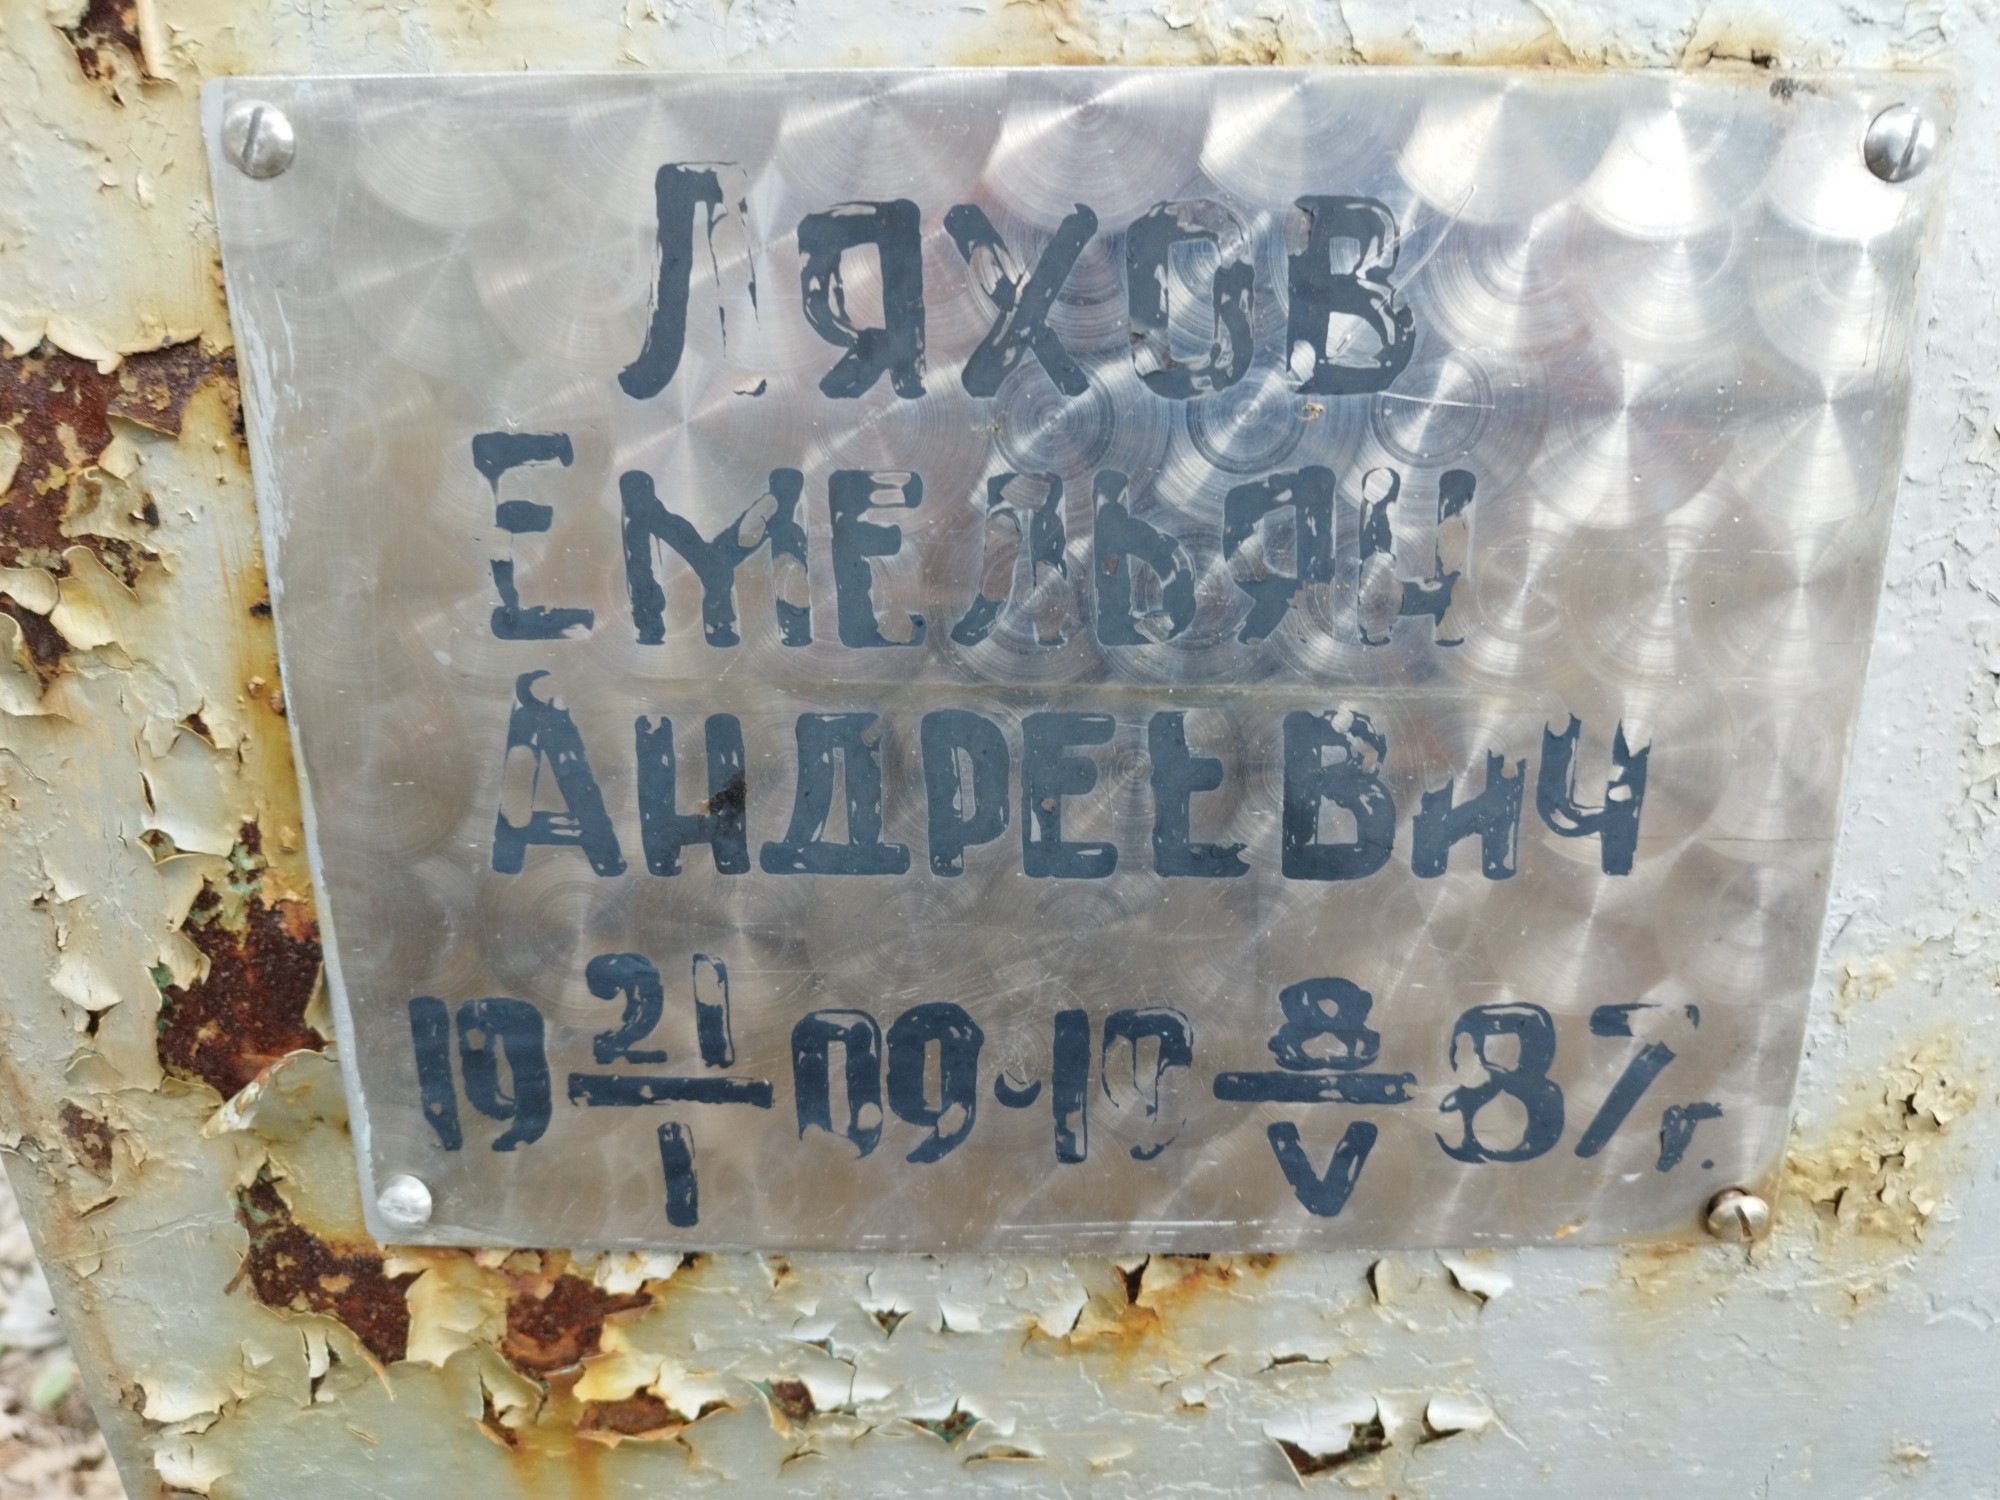 Ляхов
Емельян
Андреевич
19 21/I 09-19 8/V 87г.